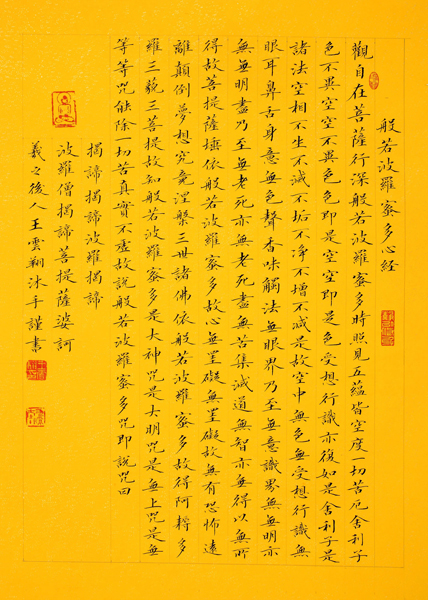 般若波羅蜜多心經
觀自在菩薩行深般若波羅蜜多時照見五蘊皆空度一切苦厄舍利子
色不異空空不異色色即是空空即是色受想行識亦復如是舍利子是
諸法空相不生不滅不垢不净不增不減是故空中無色無受想行識無
眼耳鼻舌身意無色聲香味觸法無眼界乃至無意識界無無明亦
無無明盡乃至無老死亦無老死盡無苦集滅道無智亦無得以無所
得故菩提薩埵依般若波羅蜜多故心無罣礙無罣礙故無有恐怖遠
離顛倒夢想究竟涅槃三世諸佛依般若波羅蜜多故得阿耨多
羅三藐三菩提故知般若波羅蜜多是大神咒是大明咒是無上咒是無
等等咒能除一切苦真實不虛故說般若波羅蜜多咒即說咒曰
揭諦揭諦波羅揭諦
波羅僧揭諦菩提薩婆訶
羲之後人王雲翔沐手謹書